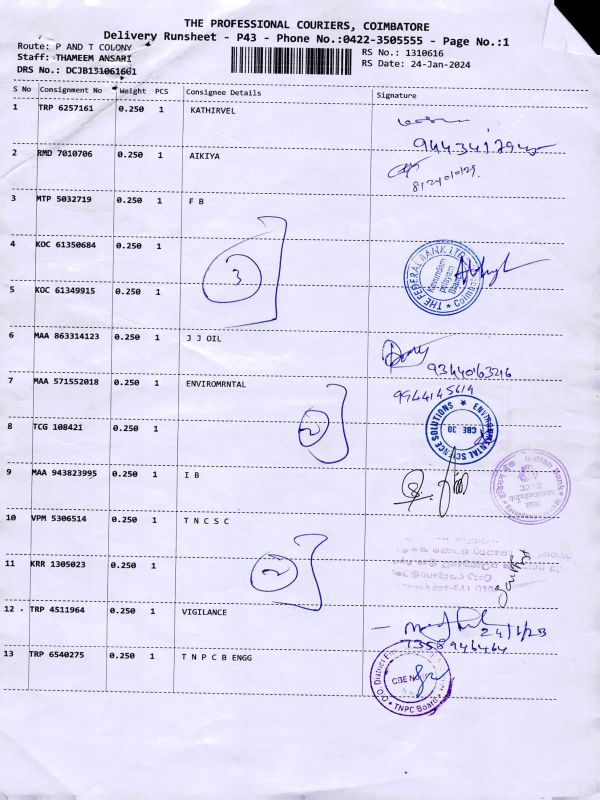 THE PROFESSIONAL COURIERS, COIMBATORE
Delivery Runsheet - P43 - Phone No.:0422-3505555 - Page No.:1
Route: P AND T COLONY
Staff: THAMEEM ANSARI
DRS No.: DCJB131061601
RS No.: 1310616
RS Date: 24-Jan-2024
S No Consignment No Weight PCS Consignee Details Signature
1 TRP 6257161 0.250 1 KATHIRVEL
2 RMD 7010706 0.250 1 AIKIYA
3 MTP 5032719 0.250 1 F B
4 KOC 61350684 0.250 1
3
THE FEDERAL BANK LTD
5 KOC 61349915 0.250 1
6 MAA 863314123 0.250 1 J J OIL
9344063246
7 MAA 571552018 0.250 1 ENVIROMRNTAL
9944145614
ENVIRONMENTAL SCIENCE SOLUTIONS
CBE 30
8 TCG 108421 0.250 1
2
9 MAA 943823995 0.250 1 I B
Indian Bank
3212
10 VPM 5306514 0.250 1 T N C S C
11 KRR 1305023 0.250 1
2
12 - TRP 4511964 0.250 1 VIGILANCE
24/1/23
7358946464
13 TRP 6540275 0.250 1 T N P C B ENGG
TNPC Board